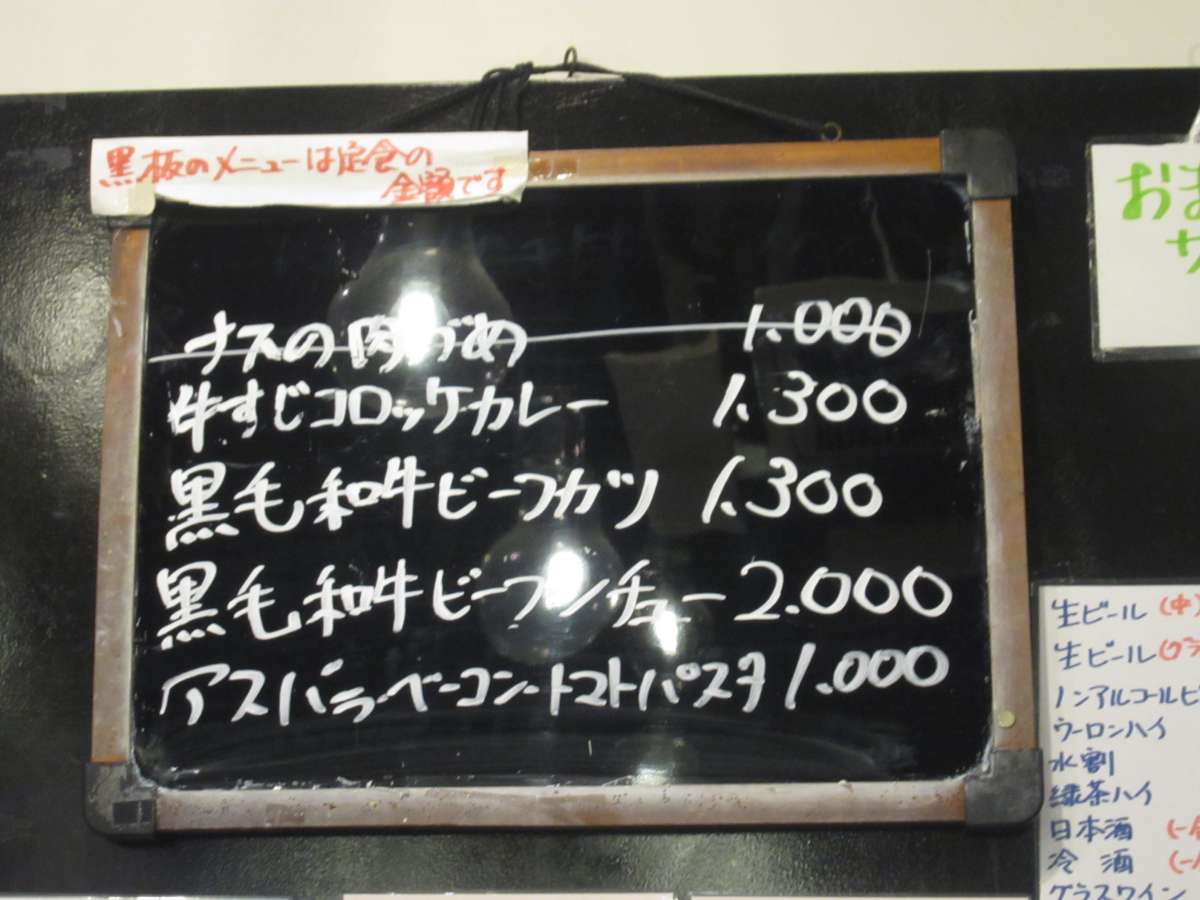 黒板のメニューは定食の
金額です
ナスの肉づめ 1.000
牛すじコロッケカレー 1.300
黒毛和牛ビーフカツ 1.300
黒毛和牛ビーフシチュー 2.000
アスパラ・ベーコン・トマトパスタ 1.000
おま
サ
生ビール (中)
生ビール (グラ
ノンアルコールビ
ウーロンハイ
水割
緑茶ハイ
日本酒 (一合
冷酒 (一
グラスワイン